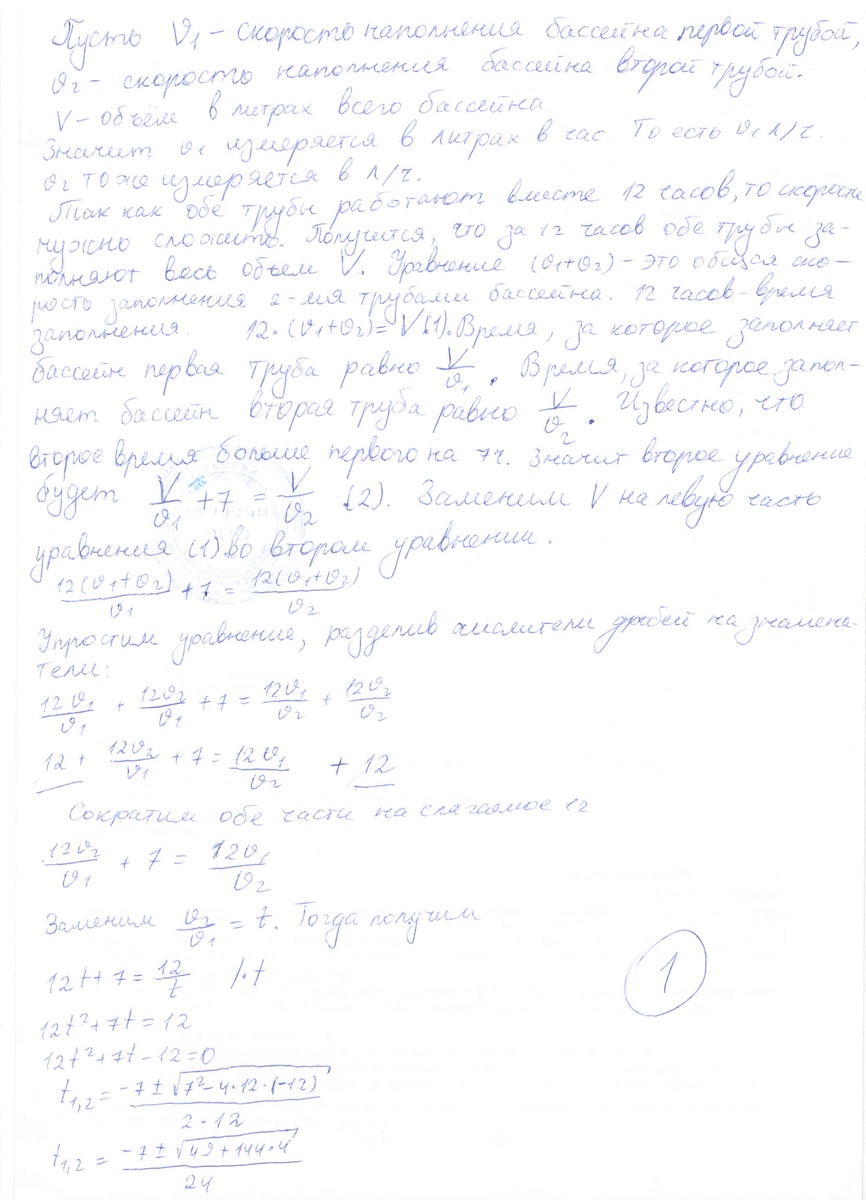 Пусть υ₁ – скорость наполнения бассейна первой трубой,
υ₂ – скорость наполнения бассейна второй трубой.
V – объём в литрах всего бассейна.
Значит υ₁ измеряется в литрах в час. То есть υ₁ л/ч.
υ₂ тоже измеряется в л/ч.
Так как обе трубы работают вместе 12 часов, то скорости
нужно сложить. Получится, что за 12 часов обе трубы за-
полняют весь объем V. Уравнение (υ₁+υ₂) – это общая ско-
рость заполнения 2-мя трубами бассейна. 12 часов – время
заполнения. 12·(υ₁+υ₂)=V(1). Время, за которое заполняет
бассейн первая труба равно V/υ₁. Время, за которое запол-
няет бассейн вторая труба равно V/υ₂. Известно, что
второе время больше первого на 7ч. Значит второе уравнение
будет V/υ₁ + 7 = V/υ₂ (2). Заменим V на левую часть
уравнения (1) во втором уравнении.
12(υ₁+υ₂)/υ₁ + 7 = 12(υ₁+υ₂)/υ₂
Упростим уравнение, разделив числители дробей на знамена-
тели:
12υ₁/υ₁ + 12υ₂/υ₁ + 7 = 12υ₁/υ₂ + 12υ₂/υ₂
12 + 12υ₂/υ₁ + 7 = 12υ₁/υ₂ + 12
Сократим обе части на слагаемое 12
12υ₂/υ₁ + 7 = 12υ₁/υ₂
Заменим υ₂/υ₁ = t. Тогда получим
12t + 7 = 12/t /·t
1
12t² + 7t = 12
12t² + 7t – 12 = 0
t₁,₂ = (–7 ± √(7² – 4·12·(–12)))/(2·12)
t₁,₂ = (–7 ± √(49 + 144·4))/24